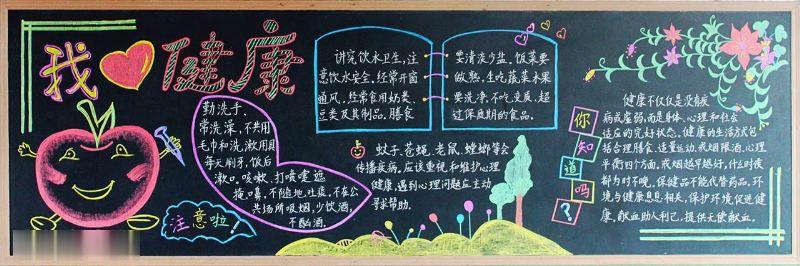 我 健康
勤洗手、
常洗澡，不共用
毛巾和洗漱用具
每天刷牙，饭后
漱口。咳嗽、打喷嚏遮
掩口鼻，不随地吐痰，不在公
共场所吸烟，少饮酒，
不酗酒。
注意啦！
讲究饮水卫生，注
意饮水安全，经常开窗
通风，经常食用奶类、
豆类及其制品。膳食
要清淡少盐，饭菜要
做熟，生吃蔬菜水果
要洗净，不吃变质、超
过保质期的食品。
蚊子、苍蝇、老鼠、蟑螂等会
传播疾病。应该重视和维护心理
健康，遇到心理问题应主动
寻求帮助。
你知道吗？
健康不仅仅是没有疾
病或虚弱，而是身体、心理和社会
适应的完好状态。健康的生活方式包
括合理膳食、适量运动、戒烟限酒、心理
平衡四个方面。戒烟越早越好，什么时候
都为时不晚。保健品不能代替药品。环
境与健康息息相关，保护环境促进健
康。献血助人利己，提供无偿献血。